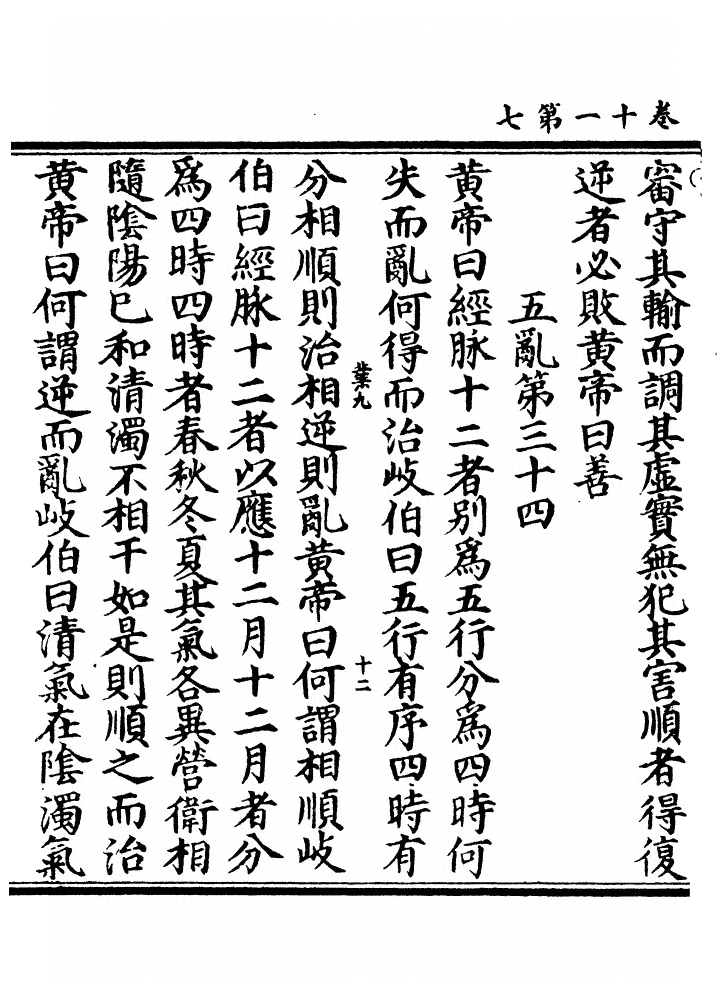 卷十一第七
審守其輸而調其虛實無犯其害順者得復
逆者必敗黄帝曰善
五亂第三十四
黄帝曰經脉十二者别爲五行分爲四時何
失而亂何得而治歧伯曰五行有序四時有
葉九
十二
分相順則治相逆則亂黄帝曰何謂相順歧
伯曰經脉十二者以應十二月十二月者分
爲四時四時者春秋冬夏其氣各異營衛相
隨陰陽已和清濁不相干如是則順之而治
黄帝曰何謂逆而亂歧伯曰清氣在陰濁氣